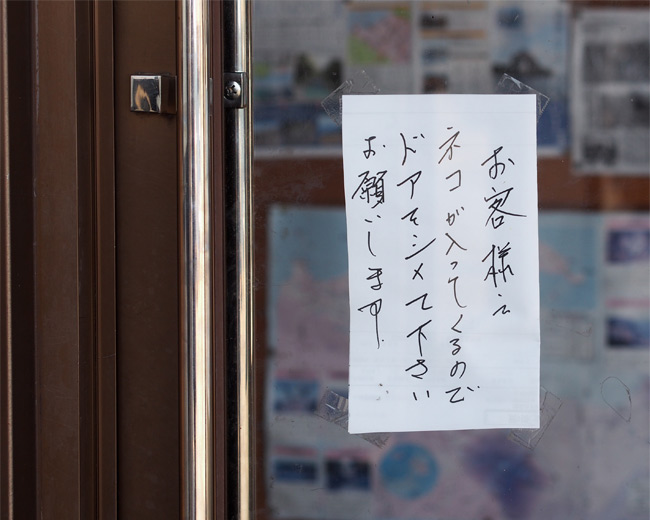 お客様へ
ネコが入ってくるので
ドアをシメて下さい
お願いします